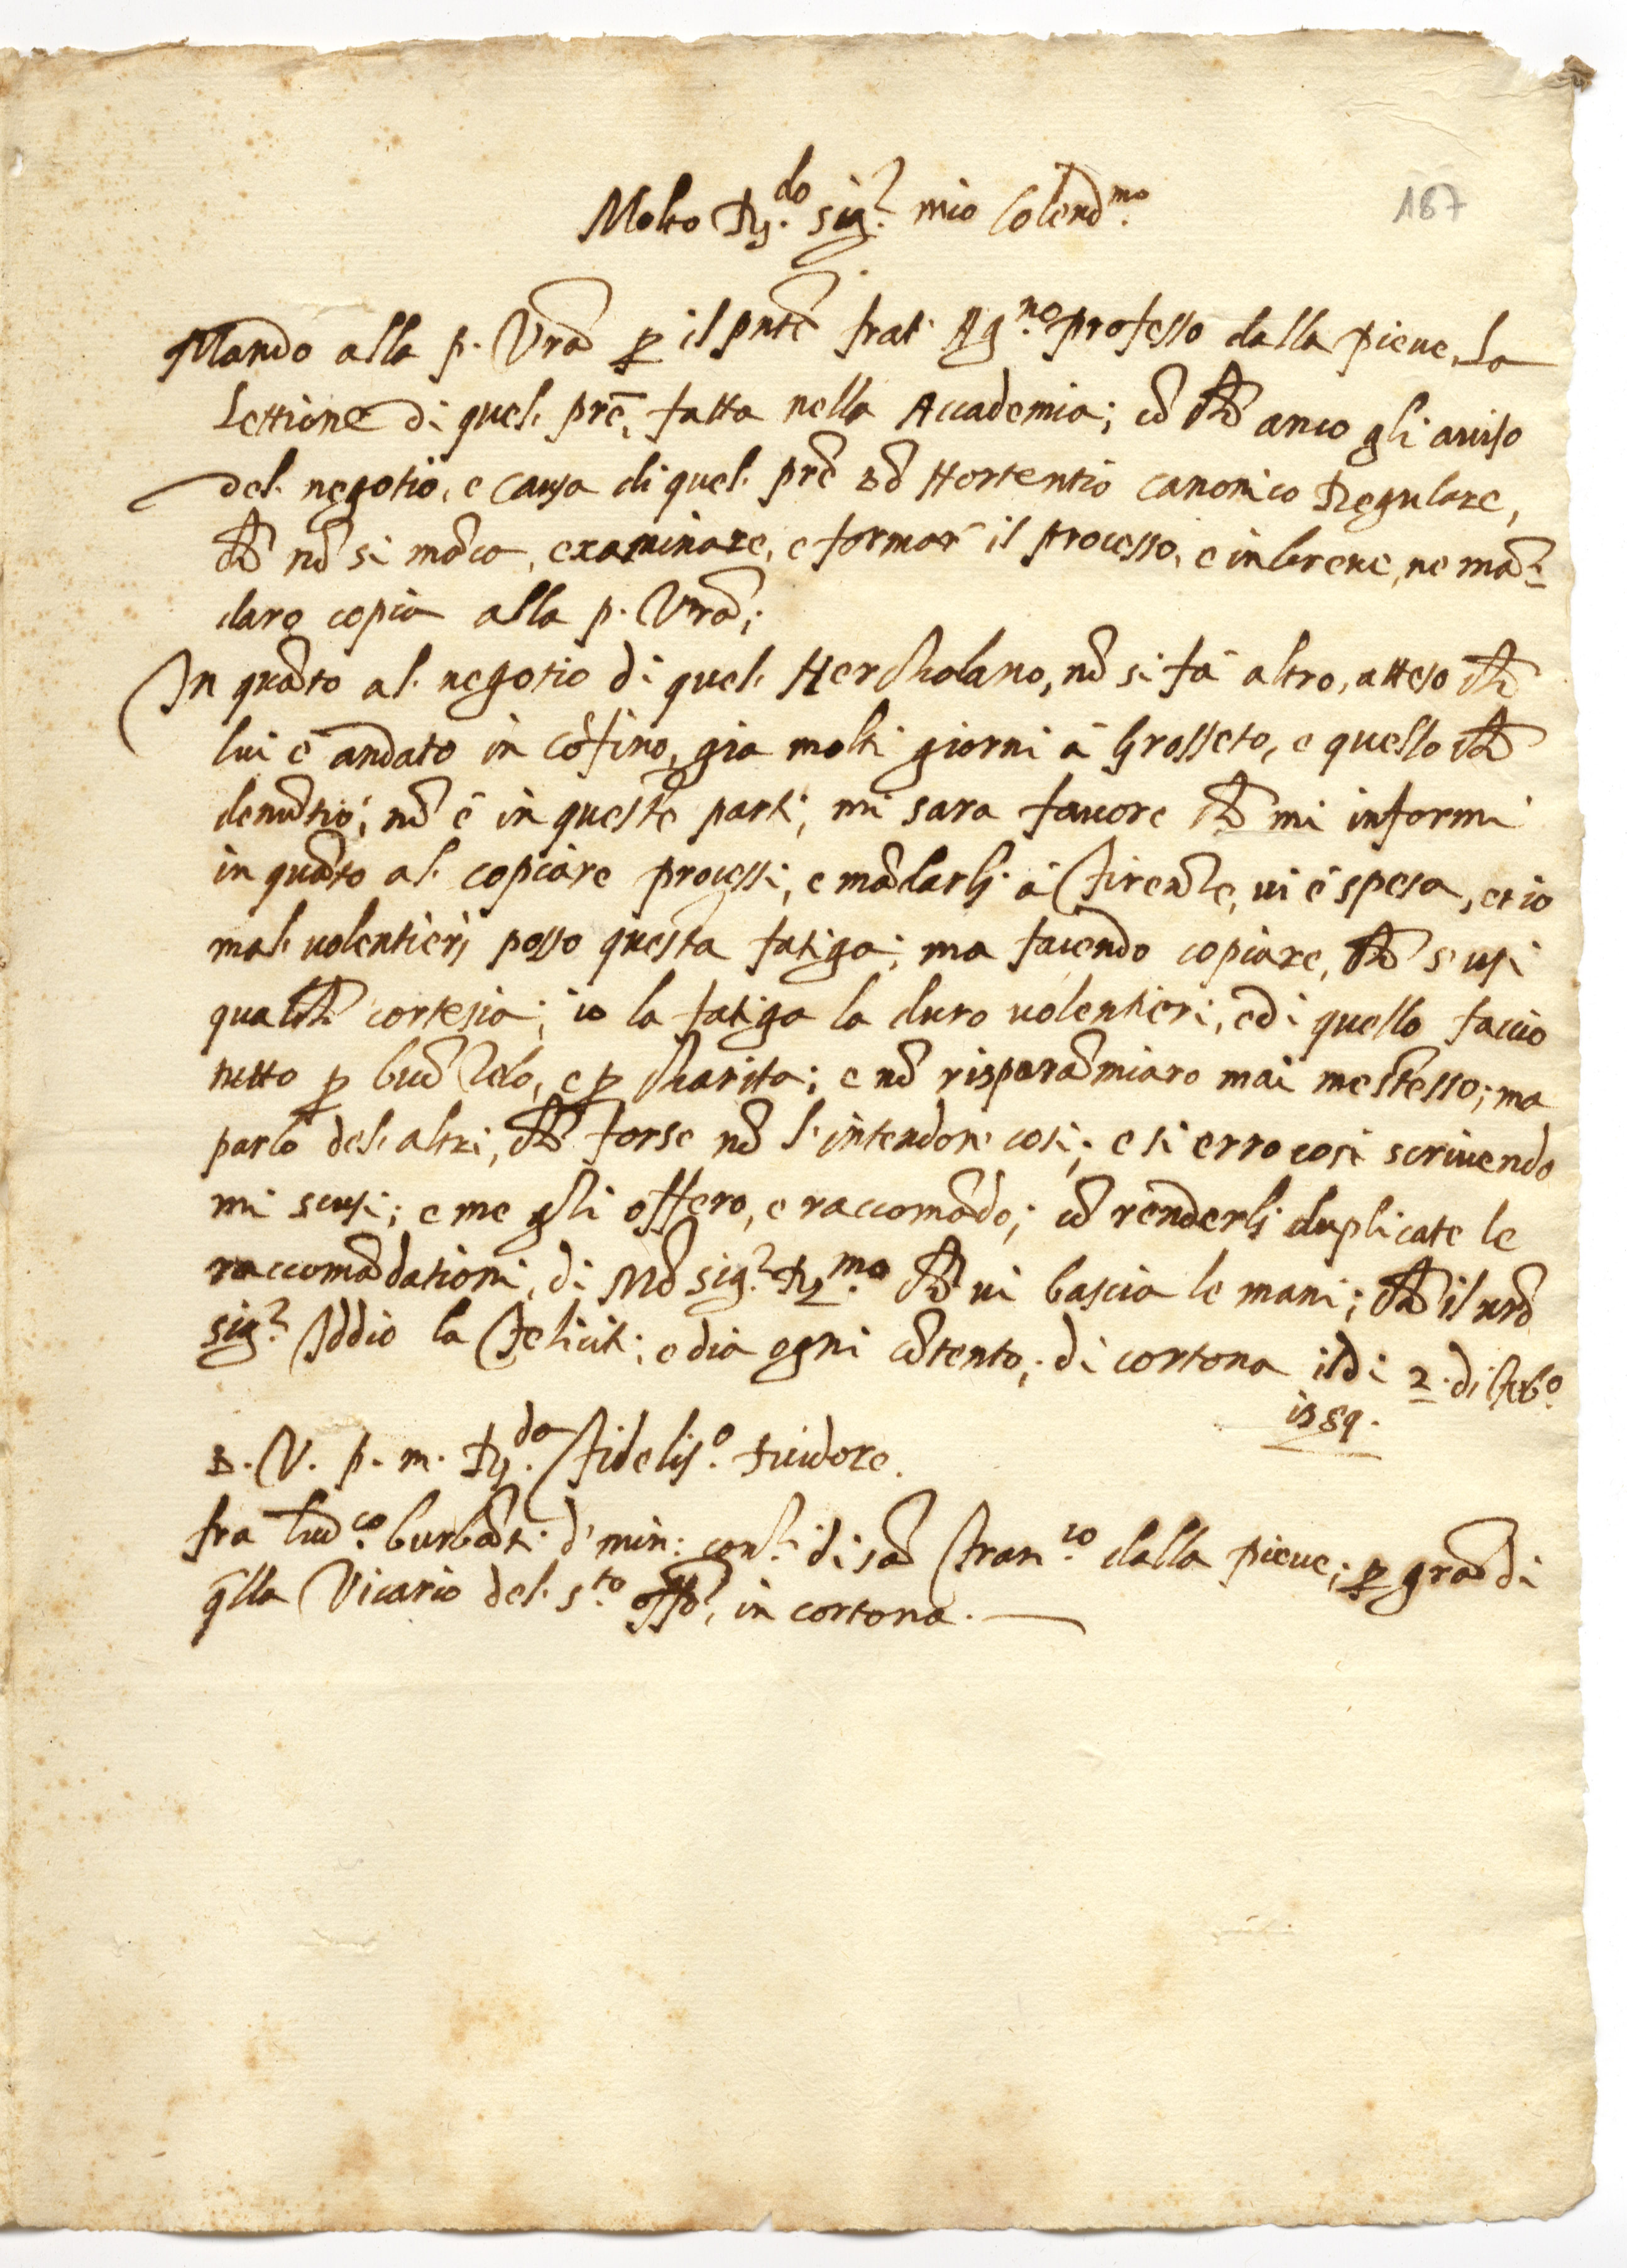 187
Molto R.do sig.r mio Colend.mo
Mando alla p. Vrã p il pnte frat' Ag.no professo dalla pieue, la
Lettione di quel. prē, fatta nella Accademia; cõ chē anco gli auiso
del. negotio, e causa di quel. prē Dõ Hortentio canonico Regulare,
chē nõ si mãca, examinare, e formar' il processo, e in breue, ne mã=
daro copia alla p. Vrã;
In quãto al. negotio di quel. Hercholano, nõ si fà altro, atteso chē
lui è andato in cõfino, gia molti giorni à Grosseto, e quello chē
denũtiò, nõ è in queste parti, mi sara fauore chē mi informi
in quãto al. copiare processi, e mãdarli à firẽze, ui è spesa, et io
mal. uolentieri posso questa fatiga; ma facendo copiare, chē s'usi
qualchē cortesia; io la fatiga la duro uolentieri, e di quello faccio
tutto p buõ zelo, e p charita; e nõ risparãmiaro mai me stesso; ma
parlo del. altri, chē forse nõ l'intendon' cosi; e si erro cosi scriuendo
mi scusi; e me gli offero, e raccomãdo; cõ renderli duplicate le
raccomãdationi, di Mõ sig.r R.mo chē ui bascia le mani; chē il nrõ
sig.r Iddio la feliciti; e dia ogni cõtento; di cortona il di 2. di feb.o
1589.
D. V. p. m. R.da fidelis.o seruidore.
fra lud.co burbãti d' min: conu.li di sã fran.co dalla pieue; p grã di
q̃lla Vicario del. s.to offõ, in cortona.